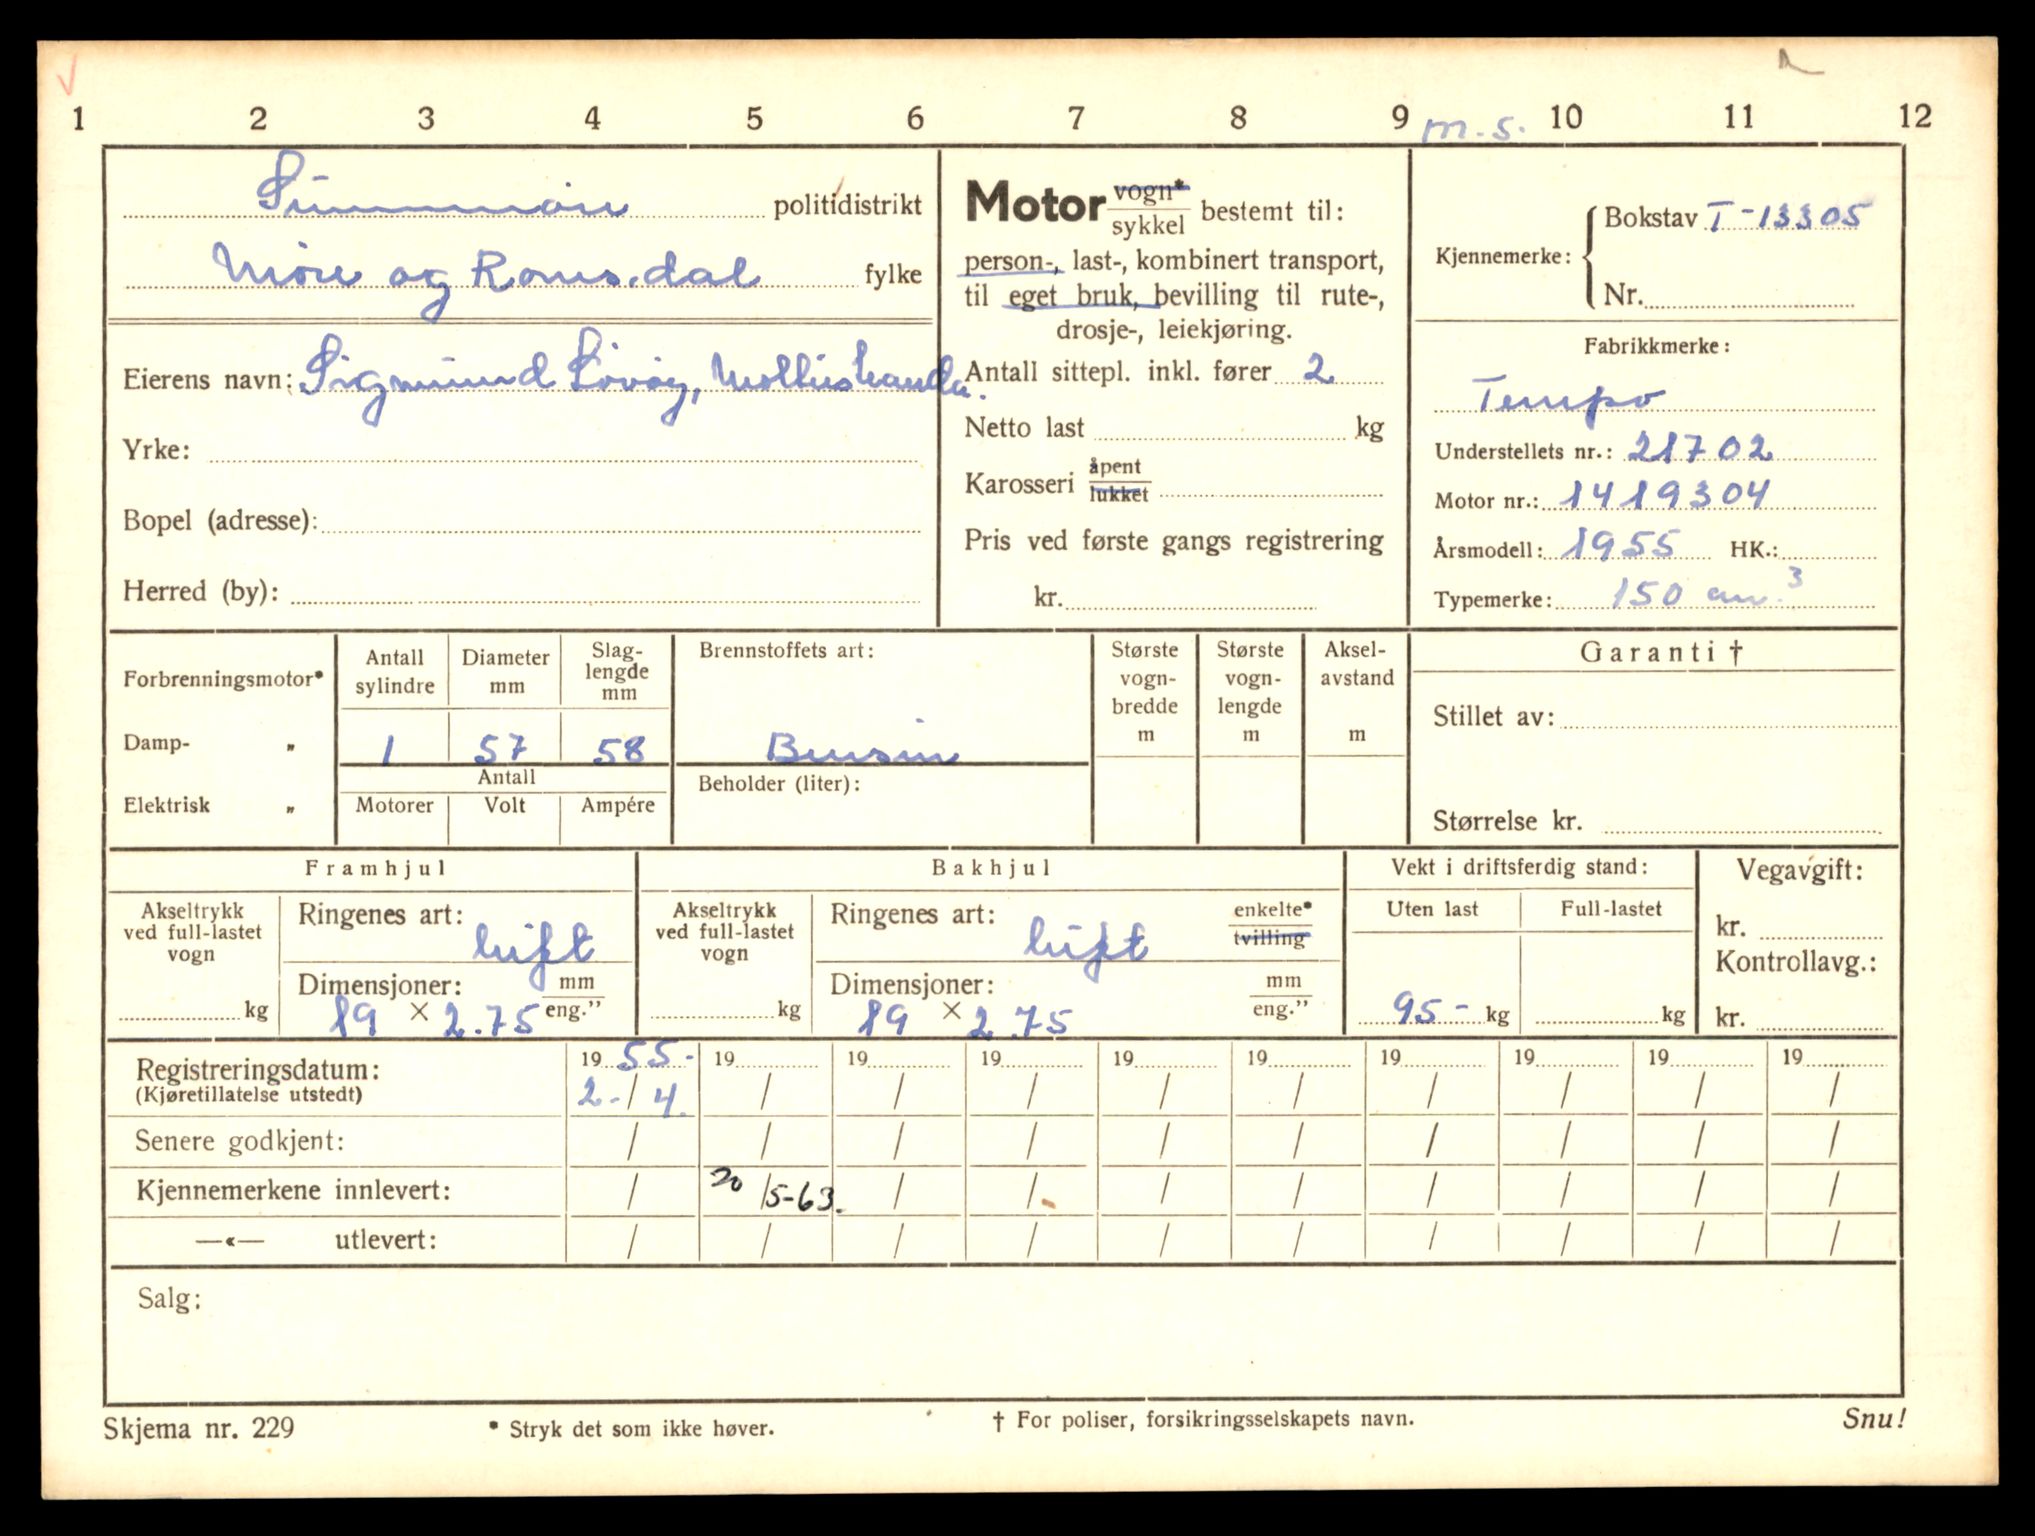 1 2 3 4 5 6 7 8 9 10 11 12
m.s.
Sunnmøre politidistrikt
Møre og Romsdal fylke
Eierens navn: Sigmund Løvøy, Moltustranda.
Yrke:
Bopel (adresse):
Herred (by):
Motor vogn* / sykkel bestemt til:
person-, last-, kombinert transport,
til eget bruk, bevilling til rute-,
drosje-, leiekjøring.
Antall sittepl. inkl. fører 2
Netto last kg
Karosseri åpent / lukket
Pris ved første gangs registrering
kr.
Kjennemerke: Bokstav T-13305
Nr.
Fabrikkmerke:
Tempo
Understellets nr.: 21702
Motor nr.: 1419304
Årsmodell: 1955 HK.:
Typemerke: 150 cm.³
Forbrenningsmotor*
Damp- „
Elektrisk „
Antall sylindre
Diameter mm
Slag-lengde mm
1 57 58
Antall
Motorer Volt Ampére
Brennstoffets art:
Bensin
Beholder (liter):
Største vogn-bredde m
Største vogn-lengde m
Aksel-avstand m
Garanti †
Stillet av:
Størrelse kr.
Framhjul
Akseltrykk ved full-lastet vogn
kg
Ringenes art: luft
Dimensjoner: mm / eng."
19 × 2.75
Bakhjul
Akseltrykk ved full-lastet vogn
kg
Ringenes art: luft enkelte* / tvilling
Dimensjoner: mm / eng."
19 × 2.75
Vekt i driftsferdig stand:
Uten last Full-lastet
95- kg kg
Vegavgift:
kr.
Kontrollavg.:
kr.
Registreringsdatum: 19 55- 19 19 19 19 19 19 19 19 19
(Kjøretillatelse utstedt) 2-/4. / / / / / / / / /
Senere godkjent: / / / / / / / / / /
Kjennemerkene innlevert: / 20/5-63. / / / / / / / /
—«— utlevert: / / / / / / / / / /
Salg:
Skjema nr. 229 * Stryk det som ikke høver. † For poliser, forsikringsselskapets navn. Snu!